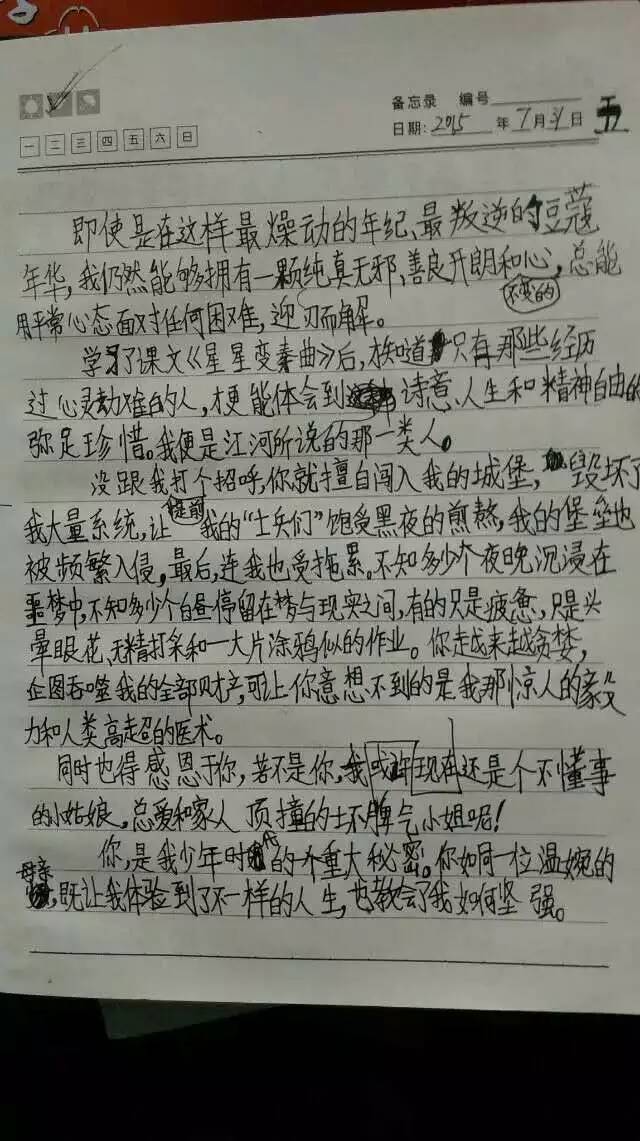 备忘录 编号
一 二 三 四 五 六 日
日期: 2015 年 7 月 31 日 五
即使是在这样最燥动的年纪、最叛逆的豆蔻
年华,我仍然能够拥有一颗纯真无邪、善良开朗和心,总能
不变的
用平常心态面对任何困难,迎刃而解。
学习了课文《星星变奏曲》后,才知道只有那些经历
过心灵劫难的人,才更能体会到诗意、人生和精神自由的
弥足珍惜。我便是江河所说的那一类人。
没跟我打个招呼,你就擅自闯入我的城堡,毁坏了
我大量系统,让提前我的“士兵们”饱受黑夜的煎熬,我的堡垒也
被频繁入侵,最后,连我也受拖累。不知多少个夜晚沉浸在
噩梦中,不知多少个白昼停留在梦与现实之间,有的只是疲惫,只是头
晕眼花、无精打采和一大片涂鸦似的作业。你越来越贪婪,
企图吞噬我的全部财产,可让你意想不到的是我那惊人的毅
力和人类高超的医术。
同时也得感恩于你,若不是你,我或许现在还是个不懂事
的小姑娘,总爱和家人顶撞的坏脾气小姐呢!
你,是我少年时代的一个重大秘密。你如同一位温婉的
母亲,既让我体验到了不一样的人生,也教会了我如何坚强。